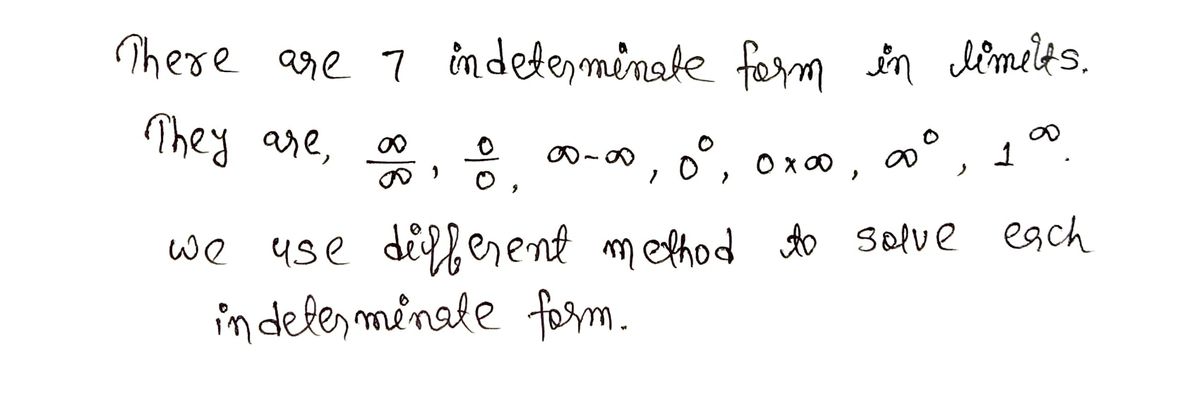 There are 7 indeterminate form in limits.
They are, ∞/∞, 0/0, ∞-∞, 0⁰, 0×∞, ∞⁰, 1^∞.
we use different method to solve each
indeterminate form.